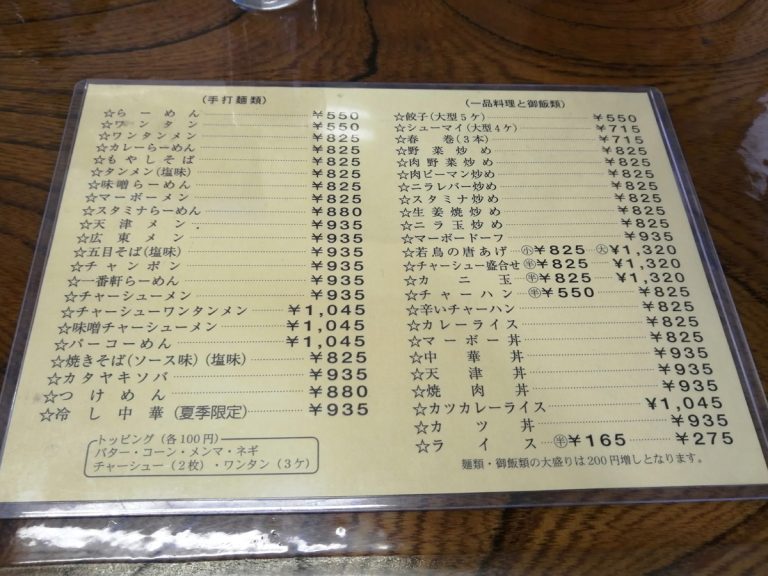 (手打麺類)
☆らーめん ¥550
☆ワンタン ¥550
☆ワンタンメン ¥825
☆カレーらーめん ¥825
☆もやしそば ¥825
☆タンメン(塩味) ¥825
☆味噌らーめん ¥825
☆マーボーメン ¥825
☆スタミナらーめん ¥880
☆天津メン ¥935
☆広東メン ¥935
☆五目そば(塩味) ¥935
☆チャンポン ¥935
☆一番軒らーめん ¥935
☆チャーシューメン ¥935
☆チャーシューワンタンメン ¥1,045
☆味噌チャーシューメン ¥1,045
☆パーコーめん ¥1,045
☆焼きそば(ソース味)(塩味) ¥825
☆カタヤキソバ ¥935
☆つけめん ¥880
☆冷し中華(夏季限定) ¥935
トッピング(各100円)
バター・コーン・メンマ・ネギ
チャーシュー(2枚)・ワンタン(3ケ)
(一品料理と御飯類)
☆餃子(大型5ケ) ¥550
☆シューマイ(大型4ケ) ¥715
☆春巻(3本) ¥715
☆野菜炒め ¥825
☆肉野菜炒め ¥825
☆肉ピーマン炒め ¥825
☆ニラレバー炒め ¥825
☆スタミナ炒め ¥825
☆生姜焼炒め ¥825
☆ニラ玉炒め ¥825
☆マーボードーフ ¥935
☆若鳥の唐あげ ㊀小¥825 大¥1,320
☆チャーシュー盛合せ 半¥825 ¥1,320
☆カニ玉 半¥825 ¥1,320
☆チャーハン 半¥550 ¥825
☆辛いチャーハン ¥825
☆カレーライス ¥825
☆マーボー丼 ¥825
☆中華丼 ¥935
☆天津丼 ¥935
☆焼肉丼 ¥935
☆カツカレーライス ¥1,045
☆カツ丼 ¥935
☆ライス 半¥165 ¥275
麺類・御飯類の大盛りは200円増しとなります。